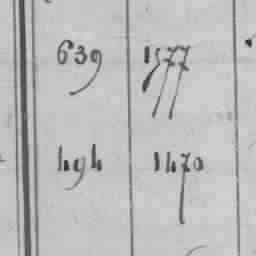 639 1577
494 1470